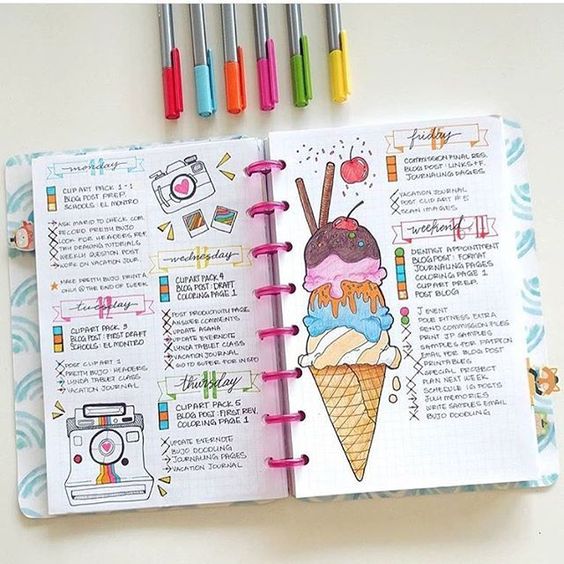 monday
11
CLIP ART PACK 1 - 1
BLOG POST PREP.
SCHOOLS: EL MONTRO
ASK MARIO TO CHECK COM.
RECORD PRETTY BUJO
LOOK FOR HEADERS REF.
THU DRAWING TUTORIALS
WEEKLY QUESTION POST
WORK ON VACATION JOUR.
MAKE PRETTY BUJO PRINT A
ONLY @ THE END OF WEEK
tuesday
12
CLIPART PACK 3
BLOG POST: FIRST DRAFT
SCHOOLS: EL MONTRO
POST CLIP ART 1
PRETTY BUJO: HEADERS
LYNDA TABLET CLASS
VACATION JOURNAL
wednesday
13
CLIPART PACK 4
BLOG POST: DRAFT
COLORING PAGE 1
POST PRODUCTIVITY PAGE
ANSWER COMMENTS
UPDATE ASANA
UPDATE EVERNOTE
LYNDA TABLET CLASS
VACATION JOURNAL
GO TO SUPER FOR INGD
thursday
14
CLIPART PACK 5
BLOG POST: FIRST REV.
COLORING PAGE 1
UPDATE EVERNOTE
BUJO DOODLING
JOURNALING PAGES
VACATION JOURNAL
friday
15
COMMISSION FINAL RES.
BLOG POST: LINKS + F.
JOURNALING PAGES
VACATION JOURNAL
POST CLIP ART #5
SCAN IMAGES
weekend
16-17
DENTIST APPOINTMENT
BLOG POST: FORMAT
JOURNALING PAGES
COLORING PAGE 1
CLIPART PREP.
POST BLOG
J EVENT
POUR FITNESS EXTRA
SEND COMMISSION FILES
PRINT JP SAMPLES
SAMPLES FOR PATREON
EMAIL FOR BLOG POST
PRINTABLES
SPECIAL PROJECT
PLAN NEXT WEEK
SCHEDULE IG POSTS
JULY MEMORIES
WRITE SAMPLES EMAIL
BUJO DOODLING